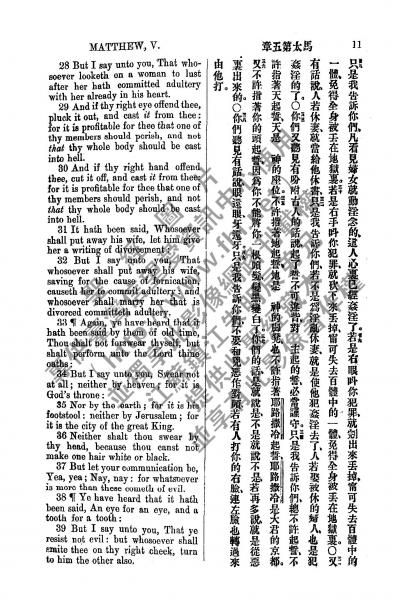 MATTHEW, V.
馬太第五章
11
28 But I say unto you, That who-
soever looketh on a woman to lust
after her hath committed adultery
with her already in his heart.
29 And if thy right eye offend thee,
pluck it out, and cast it from thee:
for it is profitable for thee that one of
thy members should perish, and not
that thy whole body should be cast
into hell.
30 And if thy right hand offend
thee, cut it off, and cast it from thee:
for it is profitable for thee that one of
thy members should perish, and not
that thy whole body should be cast
into hell.
31 It hath been said, Whosoever
shall put away his wife, let him give
her a writing of divorcement:
32 But I say unto you, That
whosoever shall put away his wife,
saving for the cause of fornication,
causeth her to commit adultery: and
whosoever shall marry her that is
divorced committeth adultery.
33 ¶ Again, ye have heard that it
hath been said by them of old time,
Thou shalt not forswear thyself, but
shalt perform unto the Lord thine
oaths:
34 But I say unto you, Swear not
at all; neither by heaven; for it is
God's throne:
35 Nor by the earth; for it is his
footstool: neither by Jerusalem; for
it is the city of the great King.
36 Neither shalt thou swear by
thy head, because thou canst not
make one hair white or black.
37 But let your communication be,
Yea, yea; Nay, nay: for whatsoever
is more than these cometh of evil.
38 ¶ Ye have heard that it hath
been said, An eye for an eye, and a
tooth for a tooth:
39 But I say unto you, That ye
resist not evil: but whosoever shall
smite thee on thy right cheek, turn
to him the other also.
只是我告訴你們、凡看見婦女就動淫念的、這人心裏已經姦淫了○若是右眼叫你犯罪就剜出來丟掉甯可失去百體中的
一體免得全身被丟在地獄裏若是右手叫你犯罪就砍下來丟掉甯可失去百體中的一體免得全身被丟在地獄裏○又
有話說人若休妻就當給他休書只是我告訴你們若不是爲淫亂休妻就是使他犯姦淫去了人若娶被休的婦人也是犯
姦淫的了○你們又聽見有吩咐古人的話說起了誓不可違背對主起的誓必當謹守只是我告訴你們總不許起誓不
許指著天起誓天是 神的座位不許指著地起誓地是 神的脚凳也不許指著耶路撒冷起誓耶路撒冷是大君的京都
又不許指著你的頭起誓因爲你不能將你一根頭髮變黑變白了你們的話是就說是不是就說不是若再多說就是從惡
裏出來的○你們聽見有話說眼還眼牙還牙只是我告訴你們不要和惡作對有人打你的右臉連左臉也轉過來
由他打。